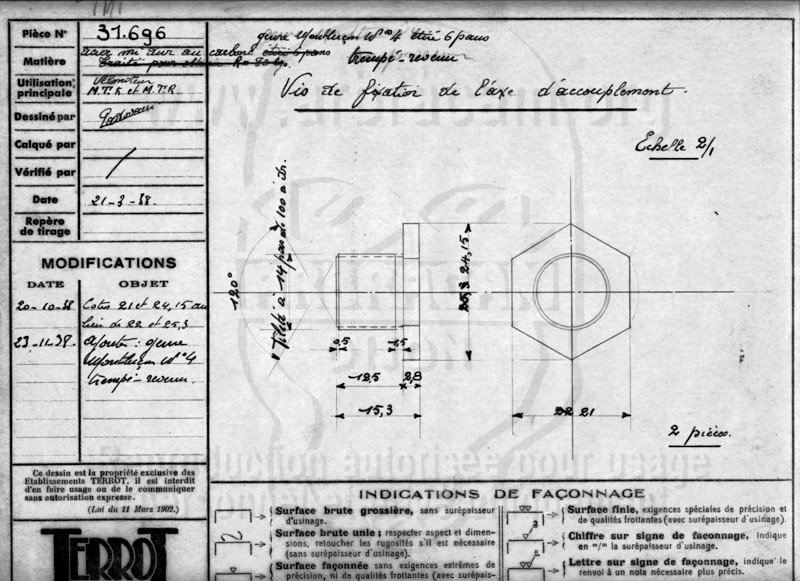 Pièce N° 31.696
genre Montluçon N° 4 étiré 6 pans
Matière acier mi dur au carbone étiré 6 pans
traité pour obtenir R = 80 kg. trempé - revenu
Utilisation principale Vélomoteur
M.T.K et M.T.R
Vis de fixation de l'axe d'accouplement.
Dessiné par
Calqué par
Echelle 2/1
Vérifié par /
Date 21-3-38.
Repère de tirage
MODIFICATIONS
DATE OBJET
20-10-38 Cotes 21 et 24,15 au
lieu de 22 et 25,3
23-11-38. Ajouté : genre
Montluçon N° 4
trempé - revenu.
120°
Fileté à 14 pas de 100 a dr.
25,3 24,15
0,5 1,5
12,5 2,8
15,3
22 21
2 pièces.
Ce dessin est la propriété exclusive des
Etablissements TERROT, il est interdit
d'en faire usage ou de le communiquer
sans autorisation expresse.
(Loi du 11 Mars 1902.)
TERROT
Reproduction autorisée pour usage
INDICATIONS DE FAÇONNAGE
Surface brute grossière, sans surépaisseur
d'usinage.
Surface brute unie ; respecter aspect et dimen-
sions, retoucher les rugosités s'il est nécessaire
(sans surépaisseur d'usinage).
Surface façonnée sans exigences extrêmes de
précision, ni de qualités frottantes (avec surépais-
Surface finie, exigences spéciales de précision et
de qualités frottantes (avec surépaisseur d'usinage).
Chiffre sur signe de faconnage, indique
en m/m la surépaisseur d'usinage.
Lettre sur signe de façonnage, indique le
renvoi à un nota nécessaire plus précis.